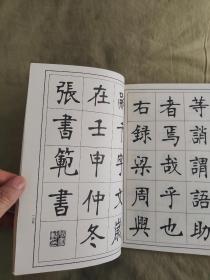 等誚謂語助
者焉哉乎也
右錄梁周興
嗣千字文歲
在壬申仲冬
張書範書